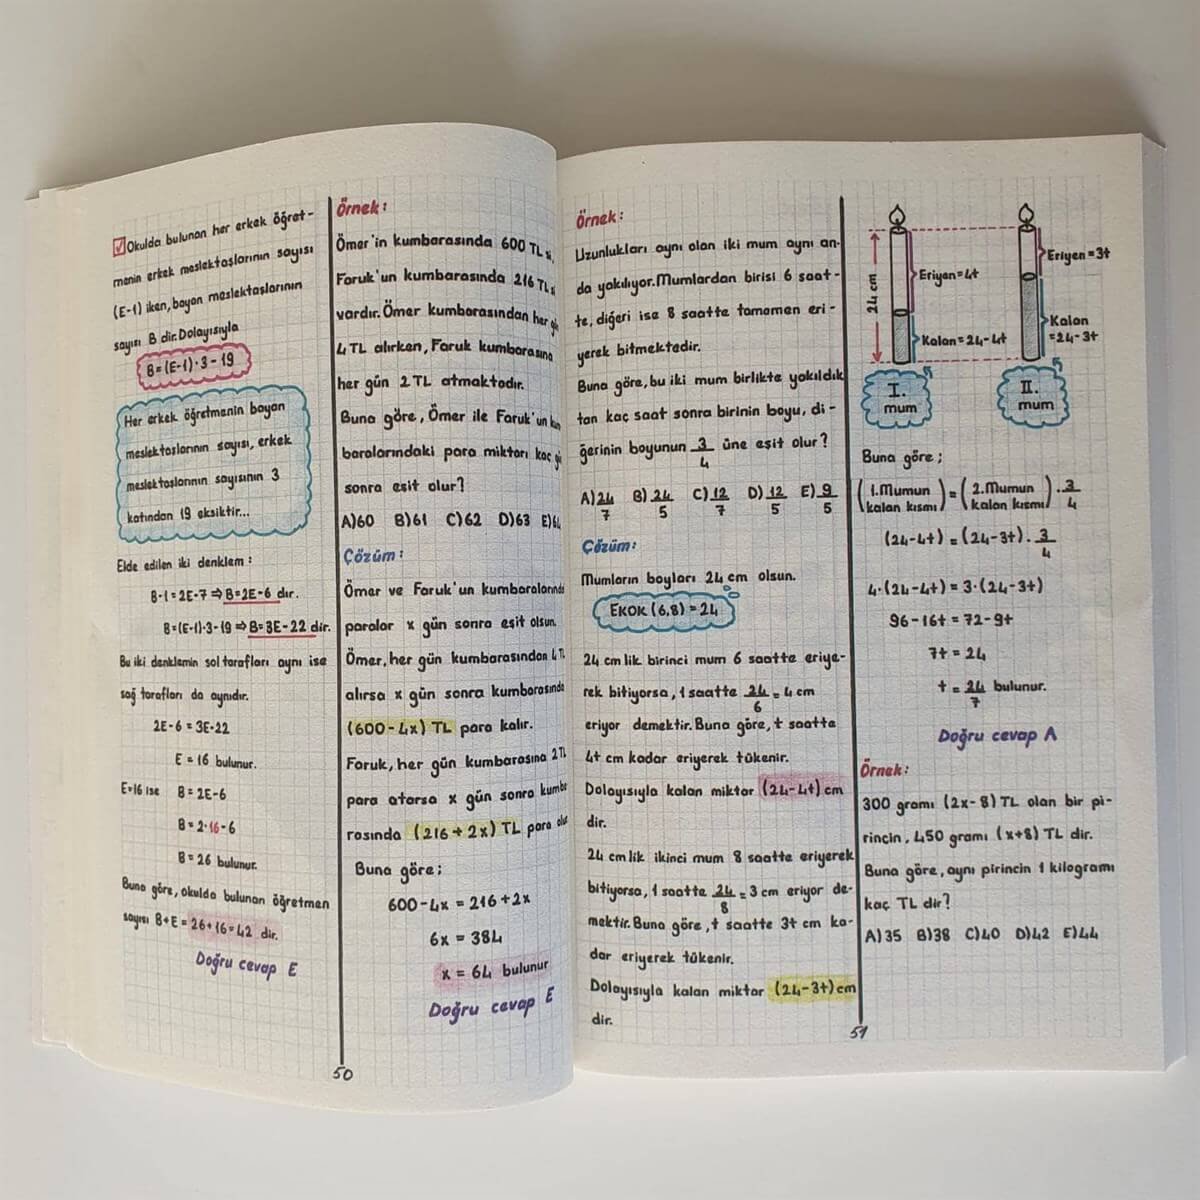 Okulda bulunan her erkek öğret-
menin erkek meslektaşlarının sayısı
(E-1) iken, bayan meslektaşlarının
sayısı B dir. Dolayısıyla
B=(E-1)·3-19
Her erkek öğretmenin bayan
meslektaşlarının sayısı, erkek
meslektaşlarının sayısının 3
katından 19 eksiktir...
Elde edilen iki denklem:
B-1=2E-7⇒B=2E-6 dır.
B=(E-1)·3-19⇒B=3E-22 dir.
Bu iki denklemin sol tarafları aynı ise
sağ tarafları da aynıdır.
2E-6=3E-22
E=16 bulunur.
E=16 ise B=2E-6
B=2·16-6
B=26 bulunur.
Buna göre, okulda bulunan öğretmen
sayısı B+E=26+16=42 dir.
Doğru cevap E
Örnek:
Ömer'in kumbarasında 600 TL si,
Foruk'un kumbarasında 216 TL si
vardır. Ömer kumbarasından her
4 TL alırken, Faruk kumbarasına
her gün 2 TL atmaktadır.
Buna göre, Ömer ile Faruk'un
baralarındaki para miktarı kaç
sonra eşit olur?
A)60 B)61 C)62 D)63 E)64
Çözüm:
Ömer ve Faruk'un
paralar x gün sonra eşit olsun.
Ömer, her gün kumbarasından 4 TL
alırsa x gün sonra kumbarasında
(600-4x) TL para kalır.
Foruk, her gün kumbarasına 2 TL
para atarsa x gün sonra kumba
rasında (216+2x) TL para
Buna göre;
600-4x=216+2x
6x=384
x=64 bulunur
Doğru cevap E
50
Örnek:
Uzunlukları aynı olan iki mum aynı an-
da yakılıyor. Mumlardan birisi 6 saat-
te, diğeri ise 8 saatte tamamen eri-
yerek bitmektedir.
Buna göre, bu iki mum birlikte yakıldık
tan kaç saat sonra birinin boyu, di-
ğerinin boyunun 3/4 üne eşit olur?
A)24/7 B)24/5 C)12/7 D)12/5 E)9/5
Çözüm:
Mumların boyları 24 cm olsun.
EKOK(6,8)=24
24 cm lik birinci mum 6 saatte eriye-
rek bitiyorsa, 1 saatte 24/6=4 cm
eriyor demektir. Buna göre, t saatte
4t cm kadar eriyerek tükenir.
Dolayısıyla kalan miktar (24-4t) cm
dir.
24 cm lik ikinci mum 8 saatte eriyerek
bitiyorsa, 1 saatte 24/8=3 cm eriyor de-
mektir. Buna göre, t saatte 3t cm ka-
dar eriyerek tükenir.
Dolayısıyla kalan miktar (24-3t) cm
dir.
24 cm
Eriyen=4t
Kalan=24-4t
I.
mum
Eriyen=3t
Kalan
=24-3t
II.
mum
Buna göre;
(1.Mumun kalan kısmı)=(2.Mumun kalan kısmı)·3/4
(24-4t)=(24-3t)·3/4
4·(24-4t)=3·(24-3t)
96-16t=72-9t
7t=24
t=24/7 bulunur.
Doğru cevap A
Örnek:
300 gramı (2x-8) TL olan bir pi-
rincin, 450 gramı (x+8) TL dir.
Buna göre, aynı pirincin 1 kilogramı
kaç TL dir?
A)35 B)38 C)40 D)42 E)44
51